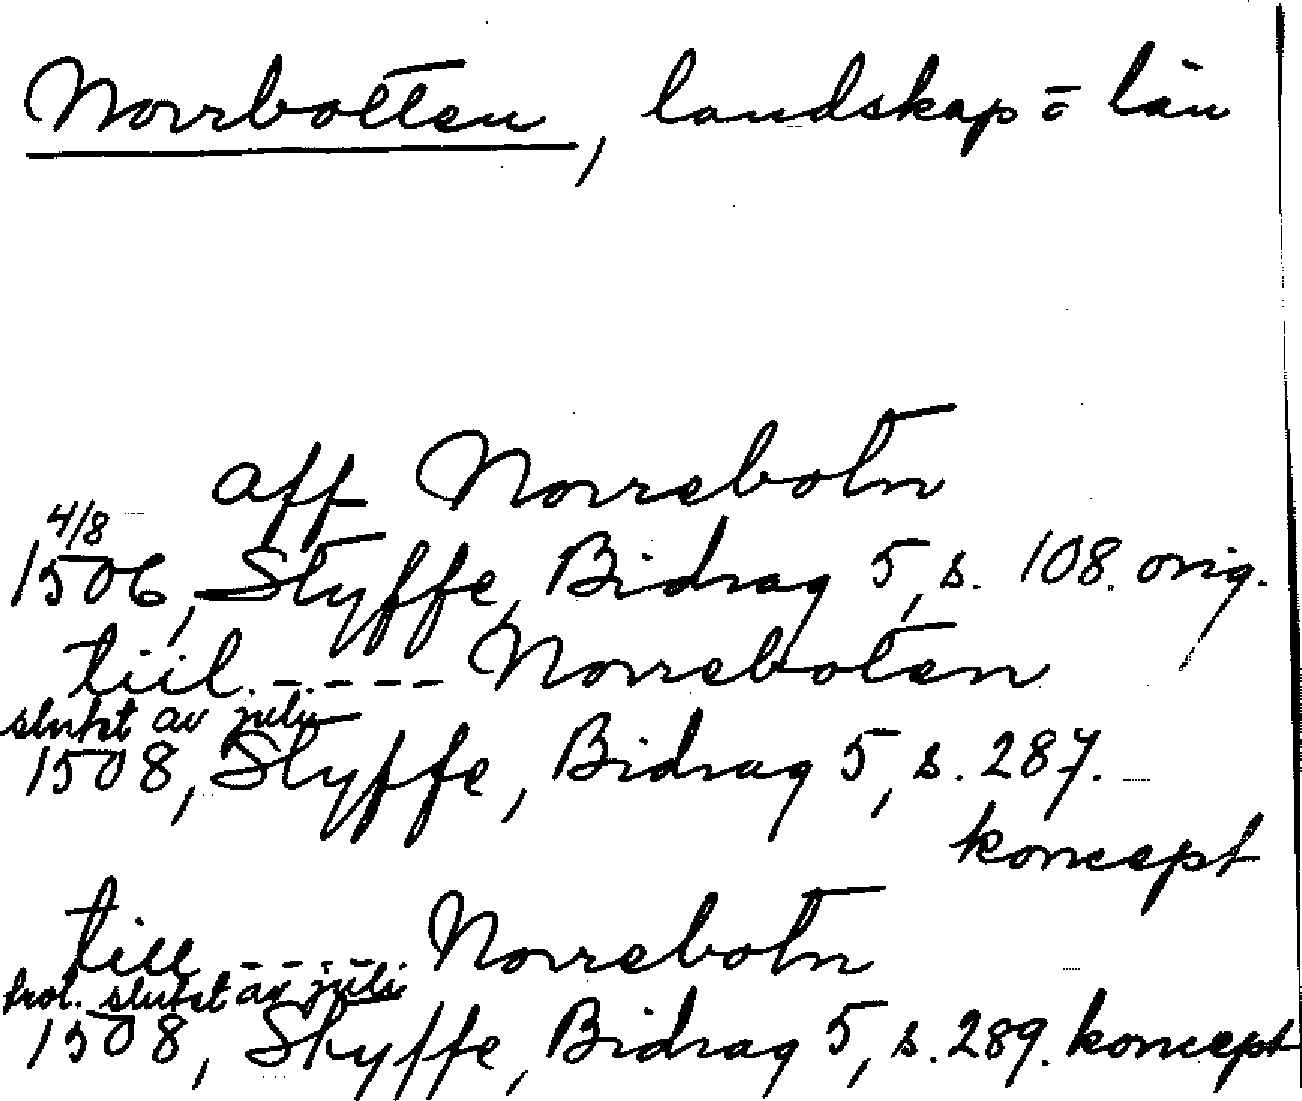 Norrbotten, landskap o län
aff Norrebotn
4/8
1506, Styffe, Bidrag 5, s. 108. orig.
tiil. - - - - - Norreboten
slutet av juli
1508, Styffe, Bidrag 5, s. 287.
koncept
till - - - - - Norrebotn
trol. slutet av juli
1508, Styffe, Bidrag 5, s. 289. koncept